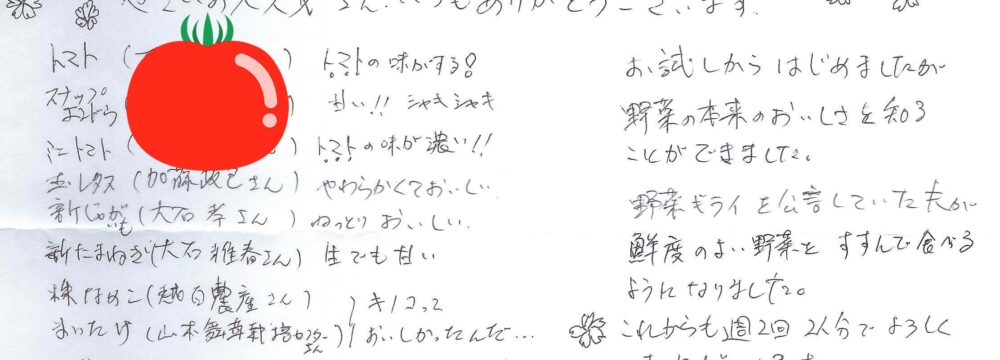 さん、いつもありがとうございます。
トマト(
トマトの味がする!
スナップ
えんどう
甘い!! シャキシャキ
ミニトマト(
トマトの味が濃い!!
玉レタス(加藤政己さん) やわらかくておいしい
新じゃがいも(大石孝さん) ねっとりおいしい。
新たまねぎ(大石雅春さん) 生でも甘い
株なめこ(農産さん)
まいたけ(山本舞茸栽培さん)
キノコって
おいしかったんだ…
お試しからはじめましたが
野菜の本来のおいしさを知る
ことができました。
野菜ギライを公言していた夫が
鮮度のよい野菜を すすんで食べる
ようになりました。
これからも週2回 2人分でよろしく